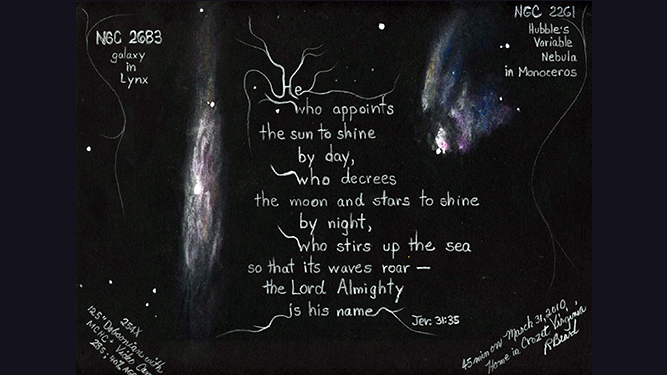 NGC 2683
galaxy
in
Lynx
NGC 2261
Hubble's
Variable
Nebula
in Monoceros
He
who appoints
the sun to shine
by day,
who decrees
the moon and stars to shine
by night,
who stirs up the sea
so that its waves roar —
the Lord Almighty
is his name
Jer. 31:35
254X
12.5" Dobsonian with
MCHC + Video Cam
45 min on March 31, 2010,
Home in Crozet Virginia